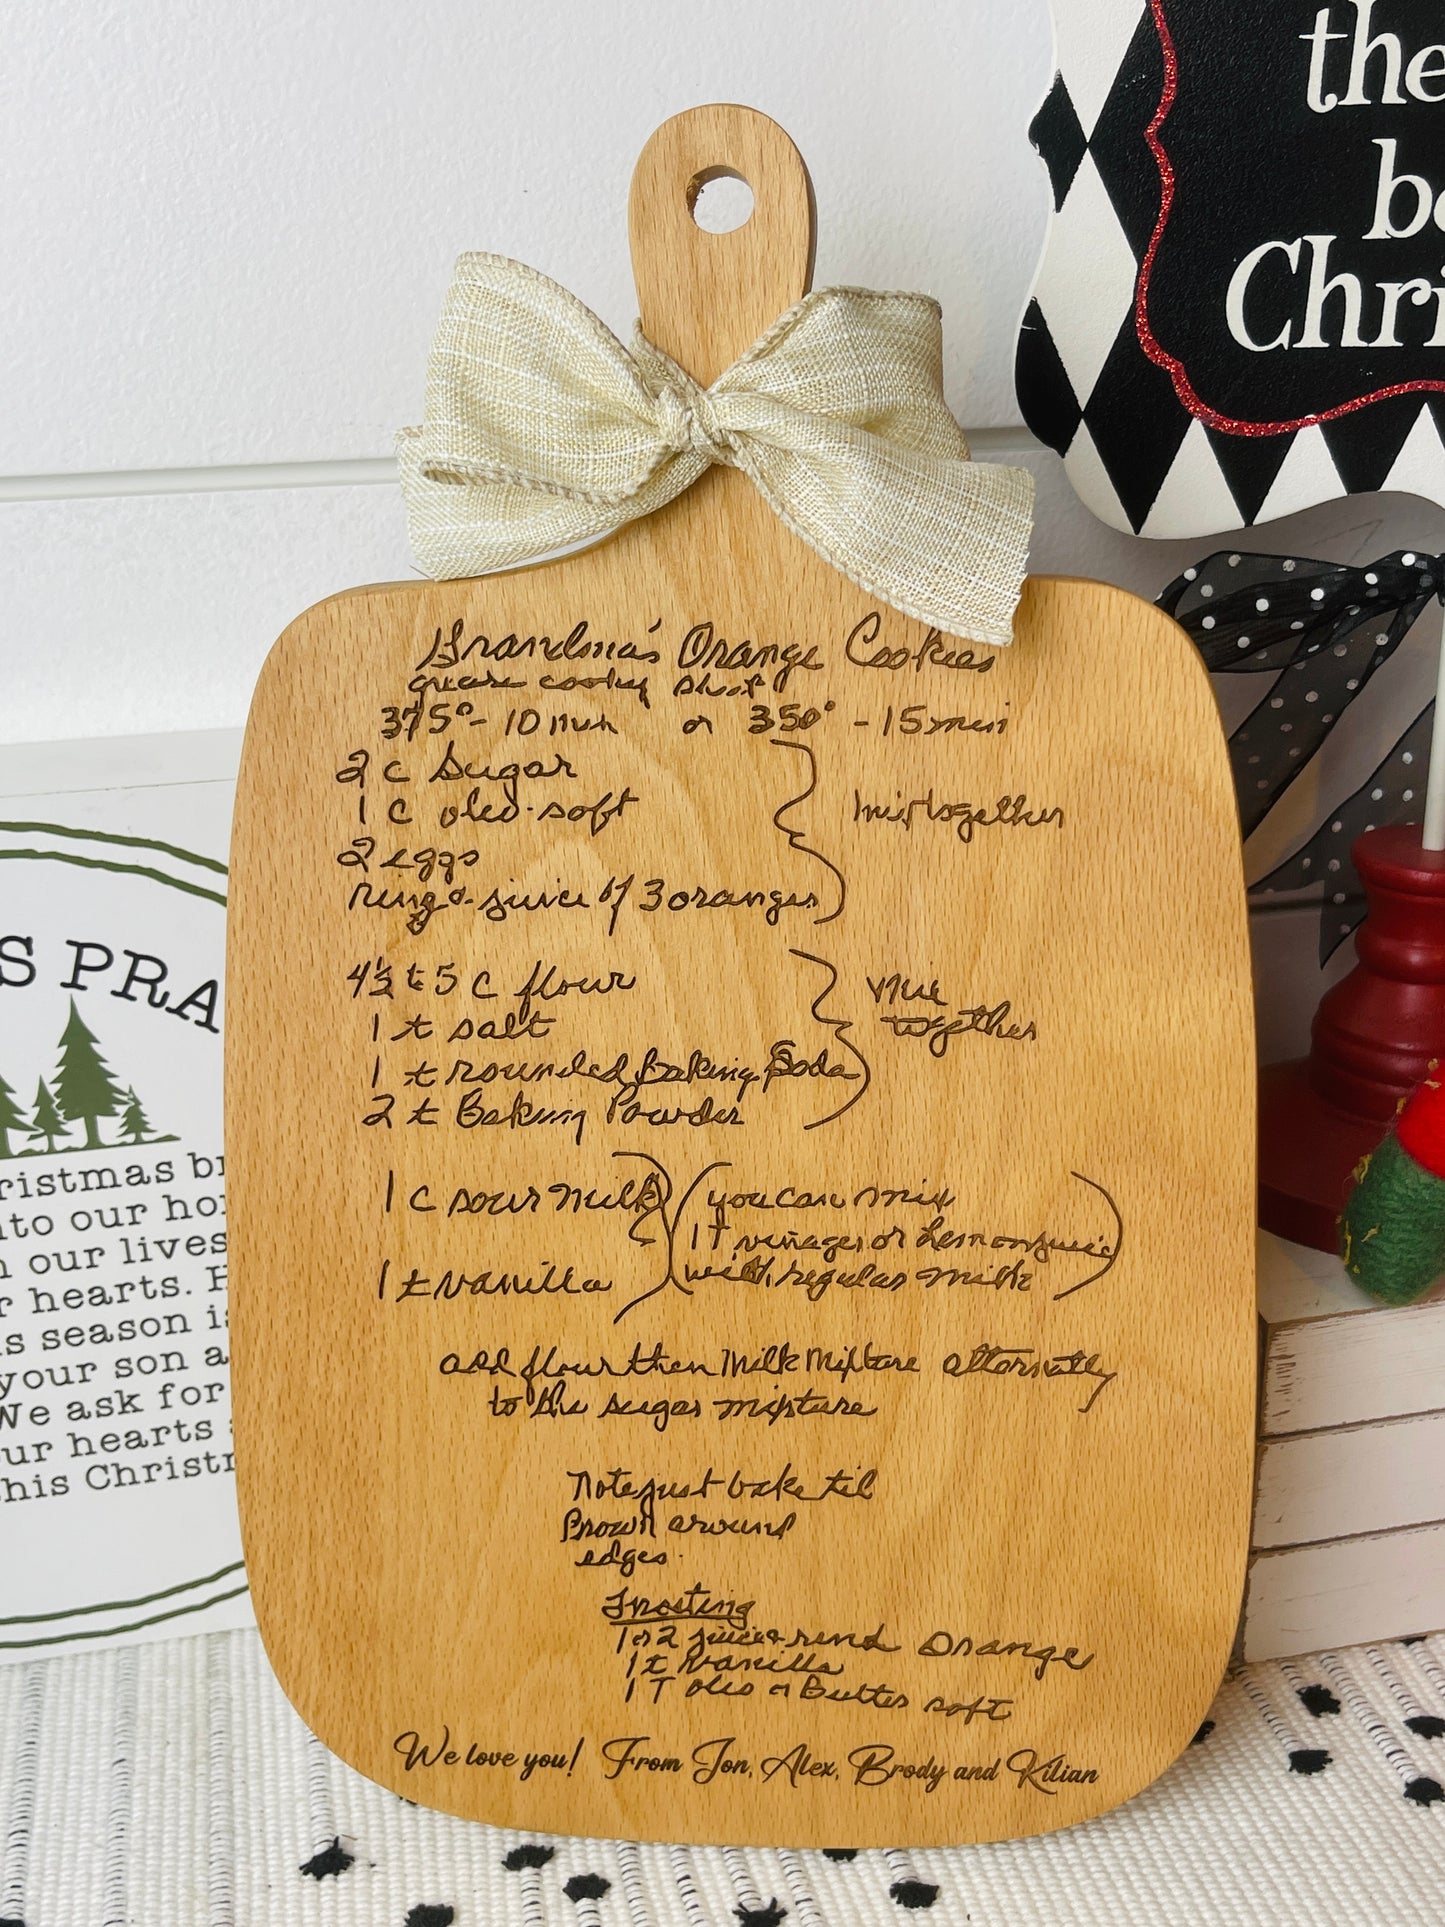 Grandma's Orange Cookies
grease cooky sheet
375° - 10 min or 350° - 15 min
2 c sugar
1 c oleo - soft
2 eggs
mix together
ring & juice of 3 oranges
4½ to 5 c flour
1 t salt
mix
together
1 t rounded Baking Soda
2 t Baking Powder
1 c sour milk
(you can mix
1 T vinager or Lemon juice
with regular milk)
1 t vanilla
add flour then Milk Mixture alternatly
to the sugar mixture
Note just bake til
Brown around
edges.
Frosting
1 or 2 juice & rind Orange
1 t vanilla
1 T oleo or Butter soft
We love you! From Jon, Alex, Brody and Kilian
the
be
Chri
S PRA
ristmas br
nto our ho
n our lives
r hearts. H
s season is
your son a
We ask for
ur hearts
his Christ